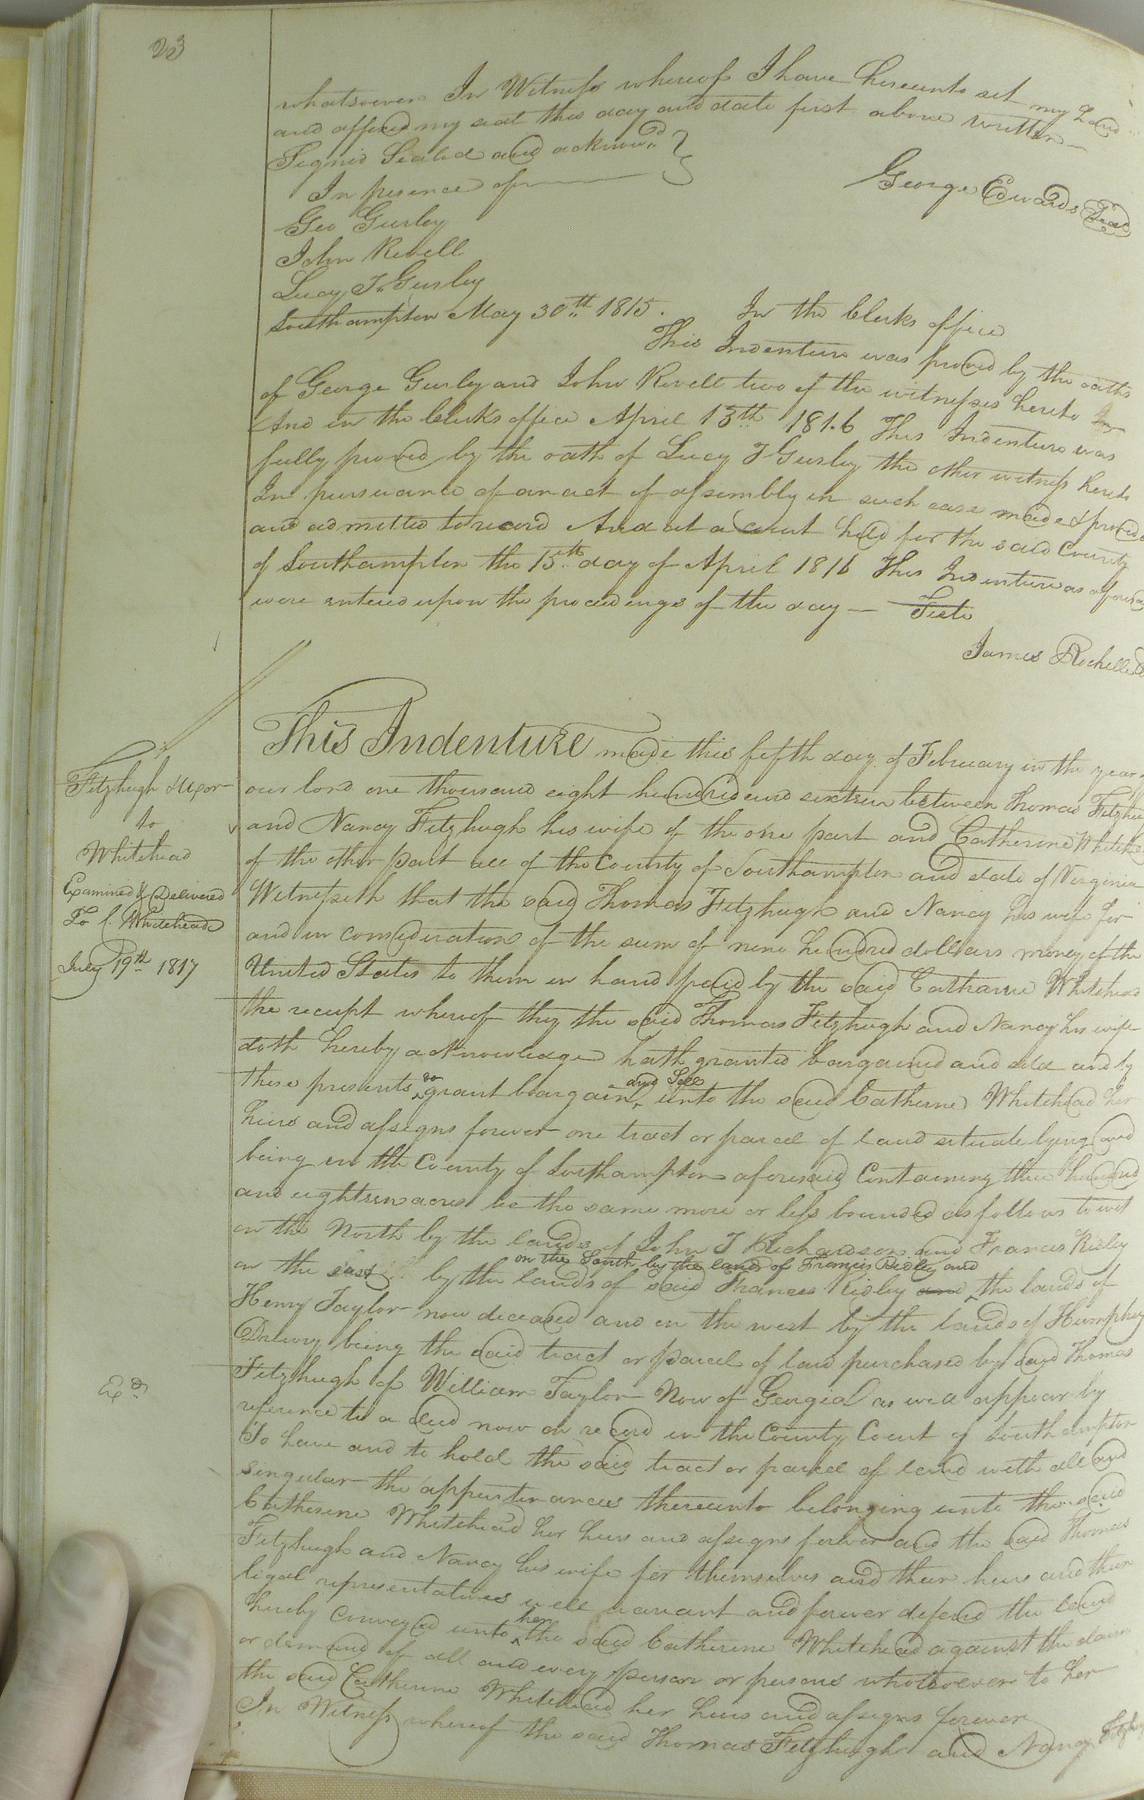 23
whatsoever. In Witness whereof I have hereunto set my hand
and affixed my seal this day and date first above written
Signed Sealed and acknowd
In presence of
George Edwards Seal
Geo Gurley
John Revell
Lucy T Gurley
Southampton May 30th 1815. In the Clerks office
This Indenture was proved by the oaths
of George Gurley and John Revell two of the witnesses hereto
And in the Clerks office April 13th 1816 This Indenture was
fully proved by the oath of Lucy T Gurley the other witness hereto
In pursuance of an act of assembly in such case made & provided
and admitted to record And at a Court held for the said County
of Southampton the 15th day of April 1816 This Indenture as aforesaid
were entered upon the proceedings of the day — Teste
James Rochelle
Fitzhugh & Uxor
to
Whitehead
Examined & Delivered
To C. Whitehead
July 19th 1817
This Indenture made this fifth day of February in the year of
our lord one thousand eight hundred and sixteen between Thomas Fitzhugh
and Nancy Fitzhugh his wife of the one part and Catherine Whitehead
of the other part all of the County of Southampton and state of Virginia
Witnesseth that the said Thomas Fitzhugh and Nancy his wife for
and in consideration of the sum of nine hundred dollars money of the
United States to them in hand paid by the said Catharine Whitehead
the receipt whereof they the said Thomas Fitzhugh and Nancy his wife
doth hereby acknowledge hath granted bargained and sold and by
these presents do grant bargain and Sell unto the said Catherine Whitehead her
heirs and assigns forever one tract or parcel of land situate lying and
being in the County of Southampton aforesaid Containing three hundred
and eighteen acres be the same more or less bounded as follows to wit
on the North by the lands of John T Richardson and Francis Ridley
on the South by the land of Francis Ridley and
on the east by the lands of said Frances Ridley and the lands of
Henry Taylor now deceased and on the west by the lands of Humphrey
Drewry being the said tract or parcel of land purchased by said Thomas
Fitzhugh of William Taylor Now of Georgia as will appear by
reference to a deed now on record in the County Court of Southampton
To have and to hold the said tract or parcel of land with all and
singular the appurtenances thereunto belonging unto the said
Catherine Whitehead her heirs and assigns forever and the said Thomas
Fitzhugh and Nancy his wife for themselves and their heirs and their
legal representatives will warrant and forever defend the land
hereby conveyed unto her the said Catherine Whitehead against the claim
or demand of all and every person or persons whatsoever to her
the said Catherine Whitehead her heirs and assigns forever
In Witness whereof the said Thomas Fitzhugh and Nancy Fitzhugh
Exd